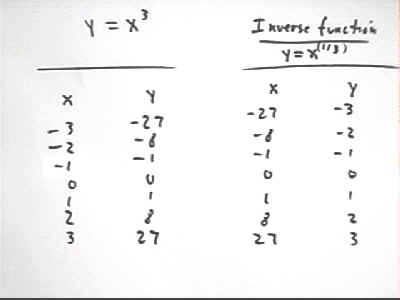 y = x³
Inverse function
y = x^(1/3)
x y
-3 -27
-2 -8
-1 -1
0 0
1 1
2 8
3 27
x y
-27 -3
-8 -2
-1 -1
0 0
1 1
8 2
27 3